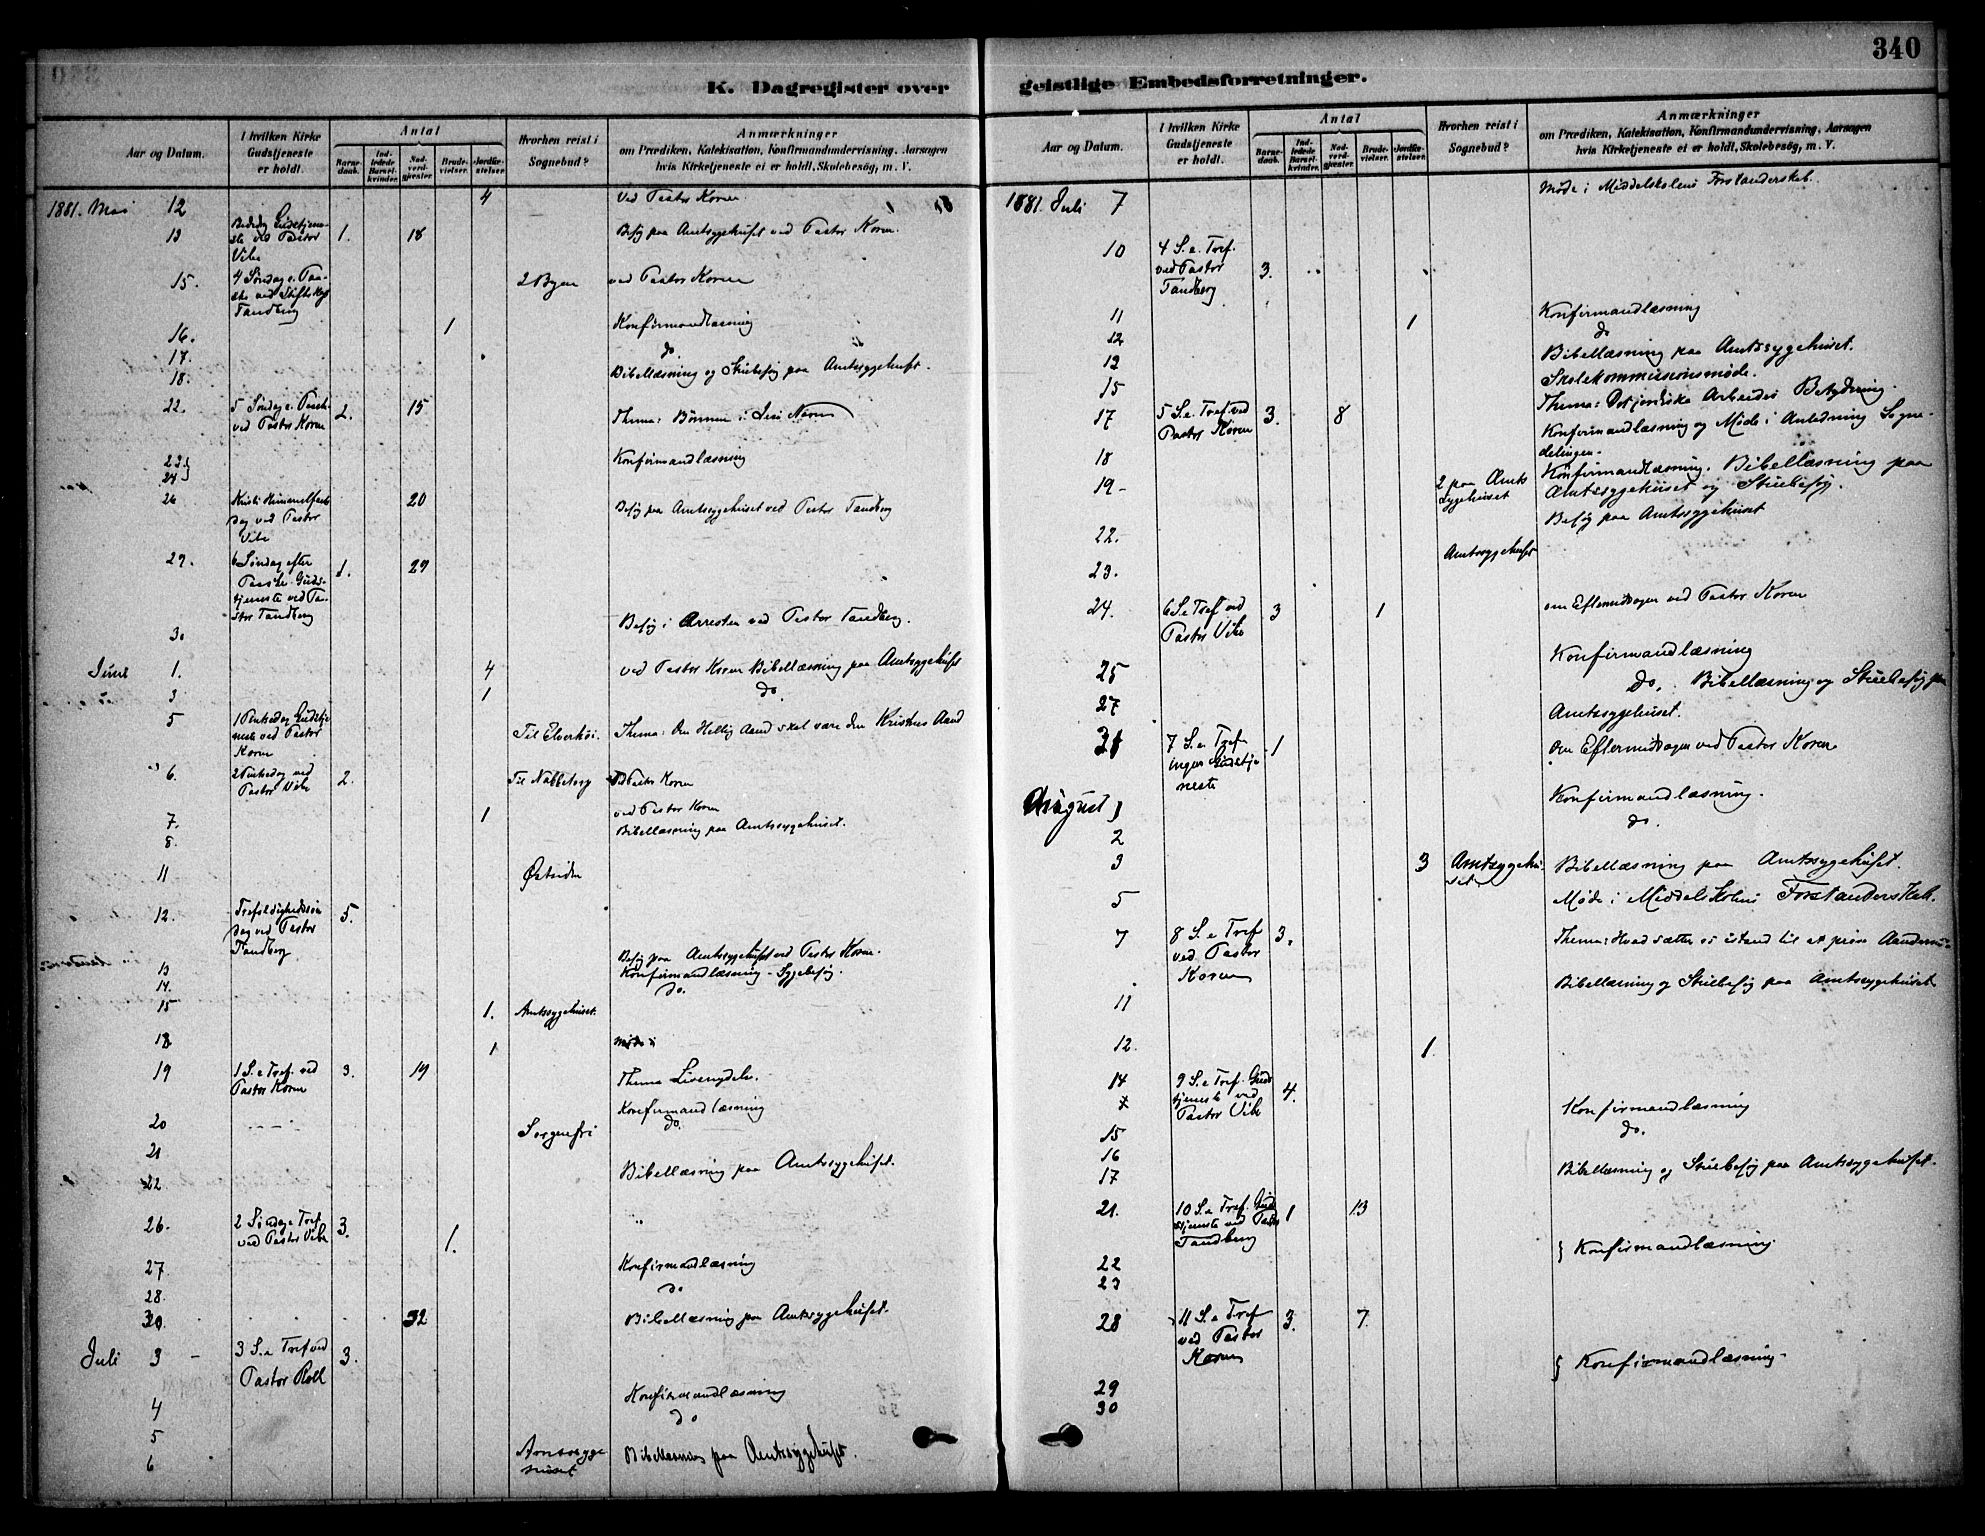 340
K. Dagregister over
geistlige Embedsforretninger.
Aar og Datum.
I hvilken Kirke
Gudstjeneste
er holdt.
Antal
Barne-
daab.
Ind-
ledede
Barsel-
kvinder.
Nad-
verd-
gjester.
Brude-
vielser.
Jordfæ-
stelser.
Hvorhen reist i
Sognebud?
Anmærkninger
om Prædiken, Katekisation, Konfirmandundervisning, Aarsagen
hvis Kirketjeneste ei er holdt, Skolebesøg, m. V.
1881. Mai 12 4 ved Pastor Koren
13 Bededag Gudstjene-
ste ved Pastor 1. 18 Besøg paa Amtssygehuset ved Pastor Koren.
Vibe
15. 4 Søndag e. Paa- 2 Byen ved Pastor Koren
ske ved
Tandberg
16. 1 Konfirmandlæsning
17. do
18. Bibellæsning og Stuebesøg paa Amtssygehuset.
22. 5 Søndag e. Pask 2. 15 Thema: Bønnen i Jesu Navn
ved Pastor Koren
23 Konfirmandlæsning
24
26 Kristi Himmelfarts 20 Besøg paa Amtssygehuset ved Pastor Tandberg
Dag ved Pastor
Vibe
29. 6 Søndag efter 1. 29
Paaske. Guds-
tjeneste ved Pa-
stor Tandberg
30 Besøg i Arresten ved Pastor Tandberg.
Juni 1. 4 ved Pastor Koren Bibellæsning paa Amtssygehuset
3 1 do.
5 1 Pintsedag Gudstje Til Elverhøi. Thema: Den Hellig Aand skal være den Kristnes Aand
neste ved Pastor
Koren
6. 2 Pintsedag ved 2. Til Nabbetorp Pastor Koren
Pastor Vibe
7. 1 ved Pastor Koren
8. Bibellæsning paa Amtssygehuset.
11 Østsiden
12. Trefoldighedssøn 5.
dag ved Pastor
Tandberg
Besøg paa Amtssygehuset ved Pastor Koren.
13 Konfirmandlæsning - Sygebesøg.
14. do.
15 1. Amtssygehuset.
18 1
19 1 S. e Tref. ved 3. 19 Thema Livsnydelse.
Pastor Koren
20 Konfirmandlæsning
21 Sorgenfri do.
22 Bibellæsning paa Amtssygehuset.
26. 2 Søndag e Tref 3. 1.
ved Pastor Vibe
27. Konfirmandlæsning
28. do
30. 32 Bibellæsning paa Amtssygehuset.
Juli 3 3 S. e Tref ved 3.
Pastor Roll
4 Konfirmandlæsning
5 do
6 Amtssyge Bibellæsning paa Amtssygehuset.
huset
Aar og Datum.
I hvilken Kirke
Gudstjeneste
er holdt.
Antal
Barne-
daab.
Ind-
ledede
Barsel-
kvinder.
Nad-
verd-
gjester.
Brude-
vielser.
Jordfæ-
stelser.
Hvorhen reist i
Sognebud?
Anmærkninger
om Prædiken, Katekisation, Konfirmandundervisning, Aarsagen
hvis Kirketjeneste ei er holdt, Skolebesøg, m. V.
1881. Juli 7 Møde i Middelskolens Forstanderskab.
10 4 S. e. Tref.
ved Pastor 3.
Tandberg
11 1 Konfirmandlæsning
12 do
12 Bibellæsning paa Amtssygehuset.
15 Skolekommissionsmøde.
17 5 S. e. Tref ved 3. 8 Thema: Det jordiske Arbeides Betydning.
Pastor Koren
18 Konfirmandlæsning og Møde i Anledning Sogne-
delingen.
19 2 paa Amts Konfirmandlæsning. Bibellæsning paa
sygehuset Amtssygehuset og Stuebesøg.
22. Besøg paa Amtssygehuset
23. Amtssygehuset
24. 6 S. e Tref ved 3 1 om Eftermiddagen ved Pastor Koren
Pastor Vibe
25 Konfirmandlæsning
27 do. Bibellæsning og Stuebesøg paa
Amtssygehuset.
31 7 S. e. Tref 1 om Eftermiddagen ved Pastor Koren
ingen Gudstje
neste
August 1 Konfirmandlæsning.
2 do.
3 3 Amtssygehu- Bibellæsning paa Amtssygehuset.
set
5 Møde i Middelskolens Forstanderskab.
7 8 S. e Tref 3. Thema: Hvad sætter os istand til at prøve Aanderne
ved Pastor
Koren
11 Bibellæsning og Stuebesøg paa Amtssygehuset
12. 1.
14 9 S. e Tref. Guds
tjeneste ved 4.
Pastor Vibe
15 Konfirmandlæsning
16 do.
17 Bibellæsning og Stuebesøg paa Amtssygehuset.
21. 10 S. e Tref. Guds 1 13
tjeneste ved Pastor
Tandberg
22 Konfirmandlæsning
23
28 11 S. e Tref 3. 7.
ved Pastor
Koren
29 Konfirmandlæsning
30